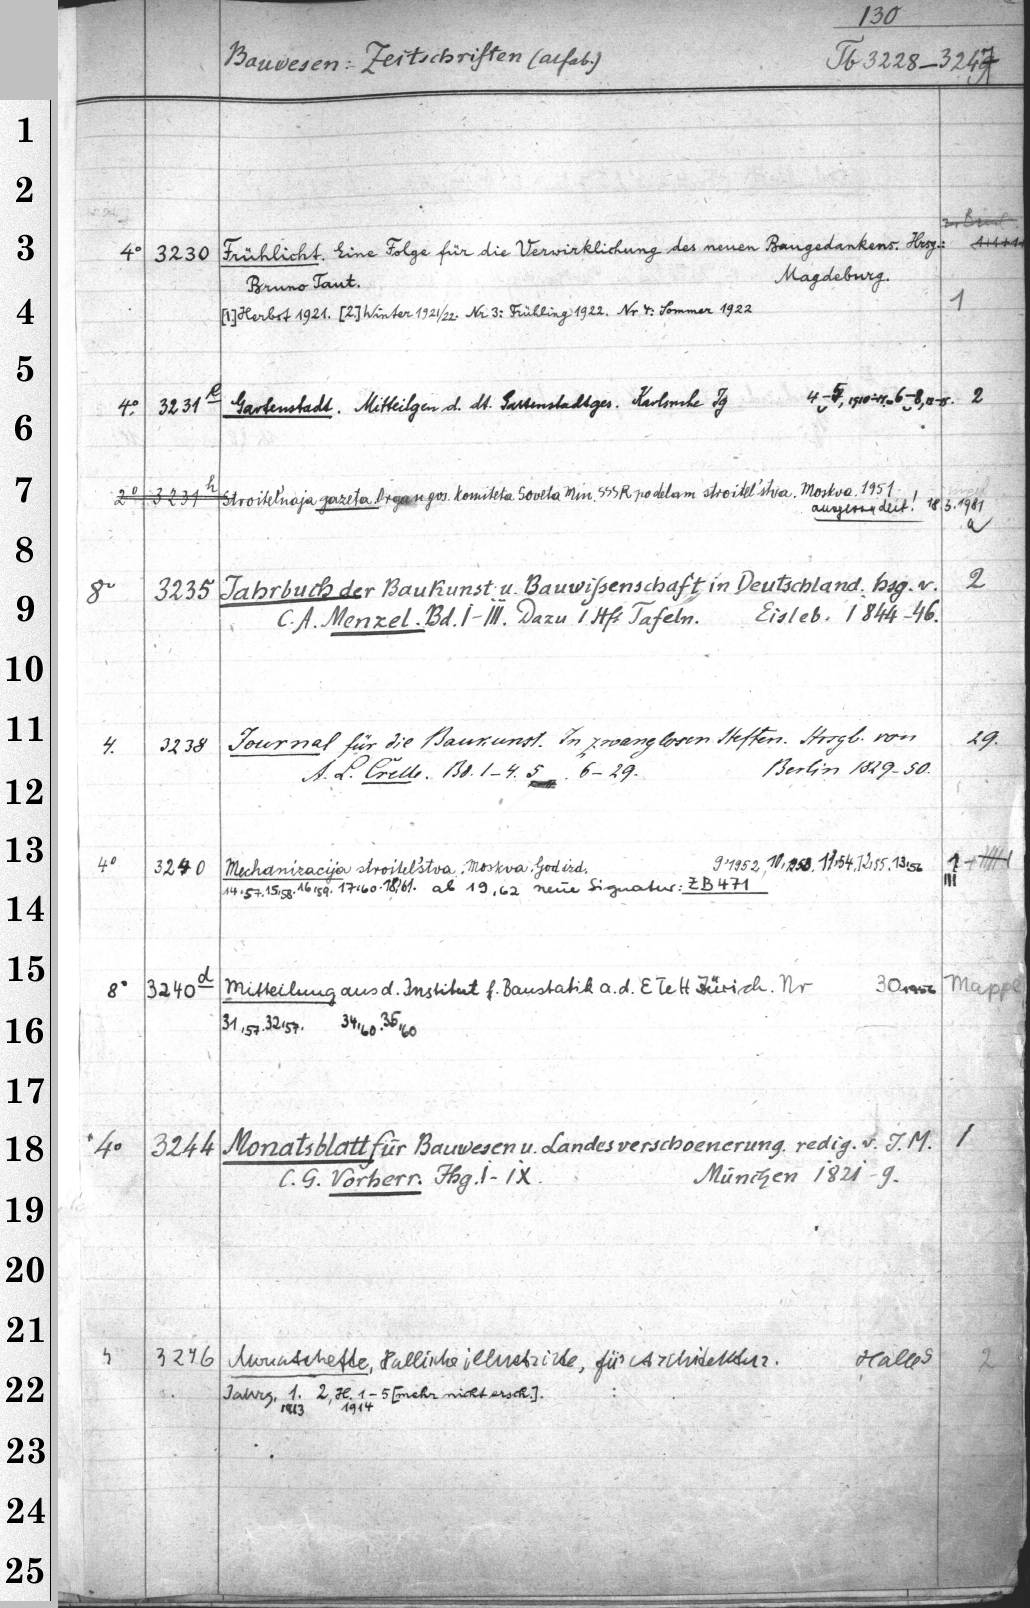 130
Bauwesen: Zeitschriften (alfab.) Tb 3228–3247
1
2
3
4° 3230 Frühlicht. Eine Folge für die Verwirklichung des neuen Baugedankens. Hrsg.:
Bruno Taut. Magdeburg.
4
[1] Herbst 1921. [2] Winter 1921/22. Nr 3: Frühling 1922. Nr 4: Sommer 1922 1
5
4° 3231 e Gartenstadt. Mitteilgen d. dt. Gartenstadtges. Karlsruhe Jg 4–5, 1910–11. 6–8, 2
6
7
2° 3231 h Stroitel'naja gazeta. Organ gos. komiteta Soveta Min. SSSR po delam stroitel'stva. Moskva 1951
ausgesondert! 18.3.1981
8
8° 3235 Jahrbuch der Baukunst u. Bauwißenschaft in Deutschland. hsg. v. 2
9
C. A. Menzel. Bd. I–III. Dazu 1 Hft Tafeln. Eisleb. 1844–46.
10
11
4. 3238 Journal für die Baukunst. In zwanglosen Heften. Hrsgb. von 29.
A. L. Crelle. Bd. 1–4. 5 . 6–29. Berlin 1829–50.
12
13
4° 3240 Mechanizacija stroitel'stva. Moskva. God izd. 9,1952, 10,1953, 11,54, 12,55. 13,56
14,57. 15,58. 16,59. 17,60. 18,61. ab 19,62 neue Signatur: ZB 471 III
14
15
8° 3240 d Mitteilung aus d. Institut f. Baustatik a. d. ETeH Zürich. Nr 30,1956 Mappe
16
31,57. 32,57. 34,60. 35,60
17
18
4° 3244 Monatsblatt für Bauwesen u. Landesverschoenerung. redig. v. J. M. 1
C. G. Vorherr. Jhg. I–IX. München 1821–9.
19
20
21
4 3246 Monatshefte, Hallische illustrirte, für Architektur. Halle S 2
22
Jahrg. 1. 2, H. 1–5 [mehr nicht ersch.].
1913 1914
23
24
25